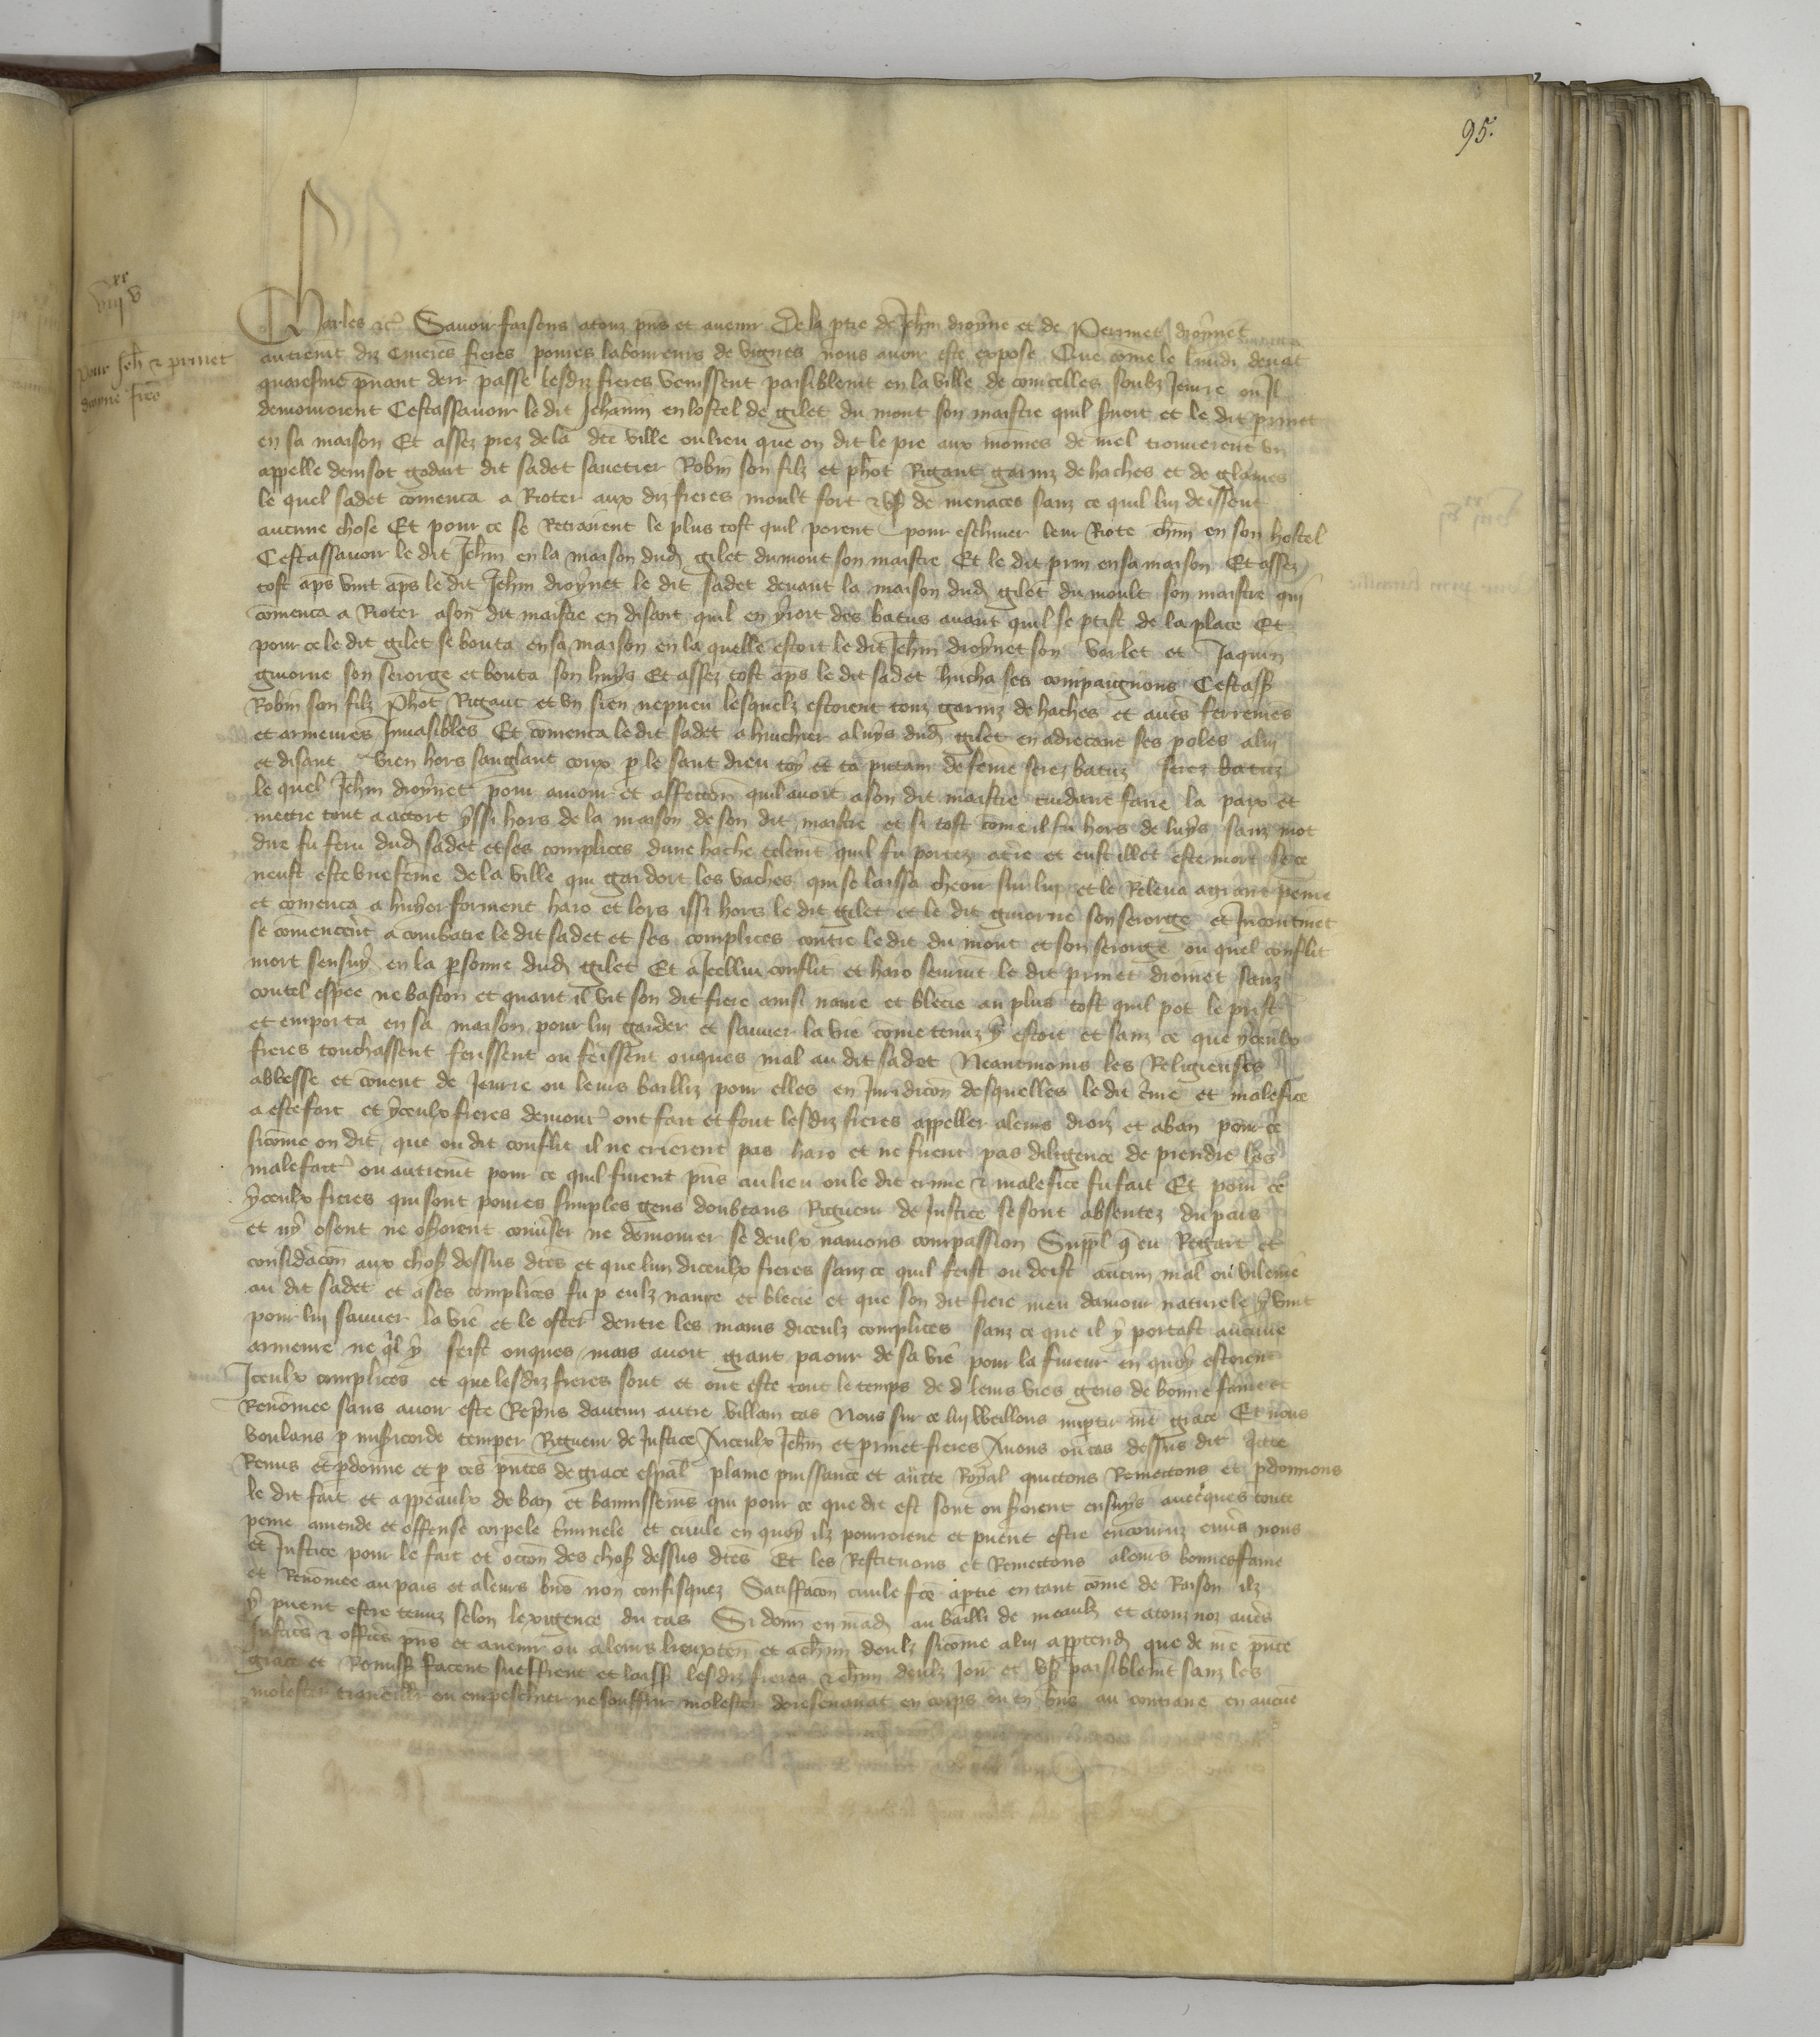 95.
xx
iiij v
pour Jeh̃ & p̃rinet
droyne frẽs
Charles &c̃ Savoir faisons a touz p̃ns et avenir De la p̃tie de Jeh̃in droyne et de Perrinet droynet
autremẽt diz frẽres povres laboureurs de vignes nous avoir este expose Que cõme le lundi devãt
quaresme p̃nant derr̃ passe lesdiz freres venissent paisiblemẽt en la ville de courcelles soubz Jourre ou Il
demouroient Cestassavoir le dit Jehãnin en lostel de gilet du mont son maistre quil s̃voit et le dit p̃rinet
en sa maison Et assez prez de la dc̃e ville ou lieu que on dit le pre aux moines de mel trouverent un
appelle denisot godart dit sadet savetier Robin son filz et ph̃ot Rigaut garniz de haches et de glaives
le quel sadet cõmenca a Rioter aux diz freres moult fort & us̃ de menaces sanz ce quil lui deissent
aucune chose Et pour ce se Retrairent le plus tost quil porent pour eschiver leur Riote ch̃un en son hostel
Cestassavoir le dit Jeh̃in en la maison dud̃ gilet dumont son maistre Et le dit p̃rin en sa maison Et assez
tost ap̃s vint ap̃s le dit Jeh̃in droynet le dit sadet devant la maison dud̃ gilet du moult son maistre qui
cõmenca a Rioter a son dit maistre en disant quil en yroit des batus avant quil se p̃tist de la place Et
pour ce le dit gilet se bouta en sa maison en la quelle estoit le dit Jeh̃in droynet son varlet et Jaquin
guiorne son serorge et bouta son huys Et assez tost ap̃s le dit sadet hucha ses compaignons Cestass̃
Robin son filz Ph̃ot Rigaut et un sien nepveu lesquelz estoient touz garniz de haches et autr̃s ferremẽs
et armeures Invasibles Et cõmenca le dit sadet a huchier a luys dud̃ gilet en adrecant ses p̃oles a lui
et disant Vien hors sanglant coux p̃ le sanc dieu toy et ta putain de fẽme serez batuz serez batuz
le quel Jeh̃in droynet pour amour et affectiõn quil avoit a son dit maistre cuidant faire la paix et
mectre tout a acort yssi hors de la maison de son dit maistre et si tost cõme il fu hors de luys sanz mot
dire fu feru dud̃ sadet et ses complices dune hache telemẽt quil fu portez a tr̃re et eust illec este mort se ce
neust este une fẽme de la ville qui gardoit les vaches qui se laissa cheoir sur luy et le Releva a grant peine
et cõmenca a huyer forment haro et lors issi hors le dit gilet et le dit guiorne son serorge et Incontinet
se cõmencerẽt a combatre le dit sadet et ses complices contre le dit du mont et son serorge ou quel conflit
mort sensuy en la p̃sonne dud̃ gilet Et a Icellui conflit et haro seurvit le dit p̃rinet droinet sanz
coutel espee ne baston et quant il vit son dit frere ainsi navre et blecie au plus tost quil pot le prist
et emporta en sa maison pour lui garder et sauver la vie cõme tenuz y estoit et sanz ce que yceulx
freres touchassent ferissent ou feissent onques mal au dit sadet Neantmoins les Religieuses
abbesse et covent de Jourre ou leurs bailliz pour elles en Juridicõn desquelles le dit crime et malefice
a este fait et yceulx freres demour̃ ont fait et font lesdiz freres appeller a leurs droiz et a ban pour ce
sicõme on dit que ou dit conflit il ne crierent pas haro et ne firent pas diligence de prendre les
malefaict̃ ou autremẽt pour ce quil furent p̃ns au lieu ou le dit crime & malefice fu fait Et pour ce
yceulx freres qui sont povres simples gens doubtans Rigueur de Justice se sont absentez du pais
et ny osent ne oseroient conṽser ne demourer se deulx navions compassion Suppl̃ q̃ eu Regart et
consid̃acõn aux chos̃ dessus dc̃es et que lun diceulx freres sanz ce quil feist ou deist aucun mal ou vilenie
au dit sadet et a ses complices fu p̃ eulz navre et blecie et que son dit frere meu damour naturele y vint
pour lui sauver la vie et le oster dentre les mains diceulz complices sanz ce que il y portast aucune
armeure ne q̃l y feist onques mais avoit grant paour de sa vie pour la fureur en quoy estoient
Iceulx complices et que lesdiz freres sont et ont este tout le temps de leurs vies gens de bonne fame et
Renõmee sans avoir este Rep̃ns daucun autre villain cas Nous sur ce lui weillons imp̃tir nr̃e grace Et nous
voulans p̃ mis̃icorde temper Rigueur de Justice A iceulx Jeh̃in et p̃rinet freres Avons ou cas dessus dit quicte
Remis et p̃donne et p̃ ces p̃ntes de grace esp̃al plaine puissance et auct̃e Royal quictons Remectons et p̃donnons
le dit fait et appeaulx de ban et bannissemẽs qui pour ce que dit est sont ou seroient ensuys avecques toute
peine amende et offense corp̃ele c̃minele et civile en quoy ilz pourroient et pevent estre encouruz envs̃ nous
et Justice pour le fait et occõn des chos̃ dessus dc̃es Et les Restituons et Remectons a leurs bonnes fame
et Renõmee au pais et a leurs biẽs non confisquez Satisfacõn civile fc̃e a p̃tie en tant cõme de Raison ilz
y pevent estre tenuz selon lexigence du cas Si donñ en mãd̃ au bailli de meaulx et a touz noz autr̃s
Justic̃s & offic̃s p̃ns et avenir ou a leurs lieuxteñ et a ch̃un deulz sicõme a lui app̃tend̃ que de nr̃e p̃nte
grace et Remiss̃ facent sueffrent et laiss̃ lesdiz freres & ch̃un deulz Joir̃ et us̃ paisiblemẽt sanz les
molester traveillr̃ ou empeschier ne souffrir molester doresenavãt en corps ou en biẽs au contraire en aucũe